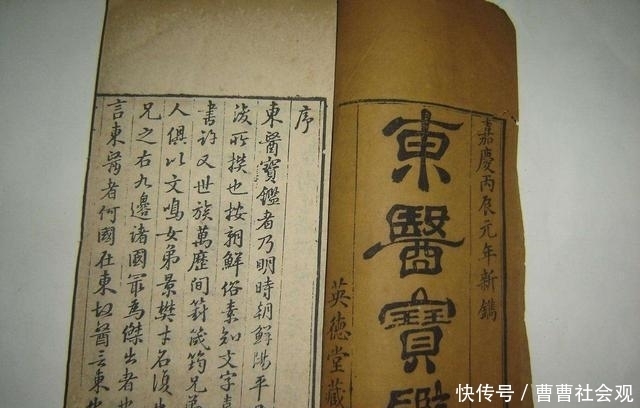 嘉慶丙辰元年新鐫
東醫寶鑑
英德堂藏
序
東醫寶鑑者乃明時朝鮮陽平
浚所撰也按朝鮮俗素知文字喜
書許又世族萬歷間葑筬筠兄弟
人俱以文鳴女弟景樊才名復出
兄之右九邊諸國最爲傑出者也
言東醫者何國在東故醫言東也
快传号/曹曹社会观